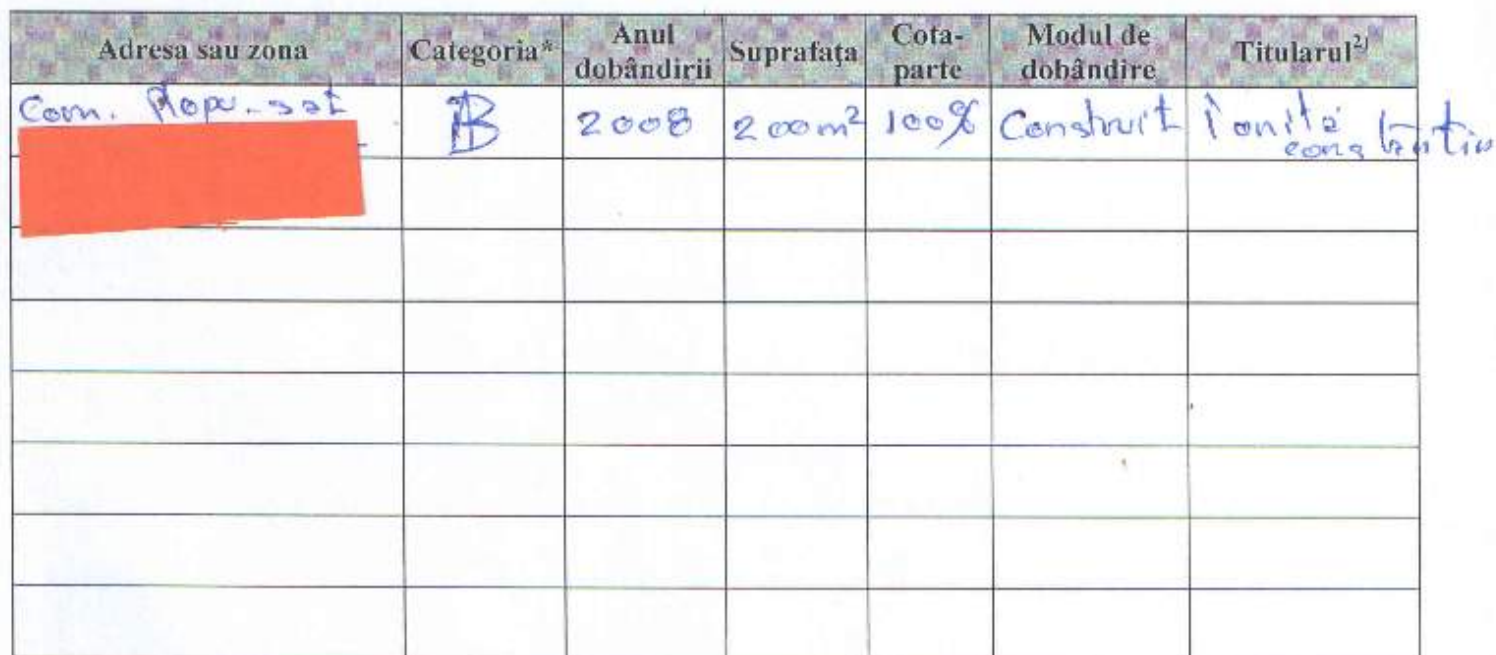 Adresa sau zona Categoria* Anul dobândirii Suprafaţa Cota-parte Modul de dobândire Titularul²⁾
Com. sat B 2008 200m² 100% Construit Ioniţă